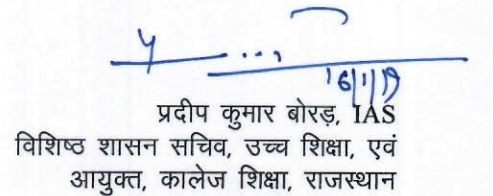 16/1/19
प्रदीप कुमार बोरड़, IAS
विशिष्ठ शासन सचिव, उच्च शिक्षा, एवं
आयुक्त, कालेज शिक्षा, राजस्थान